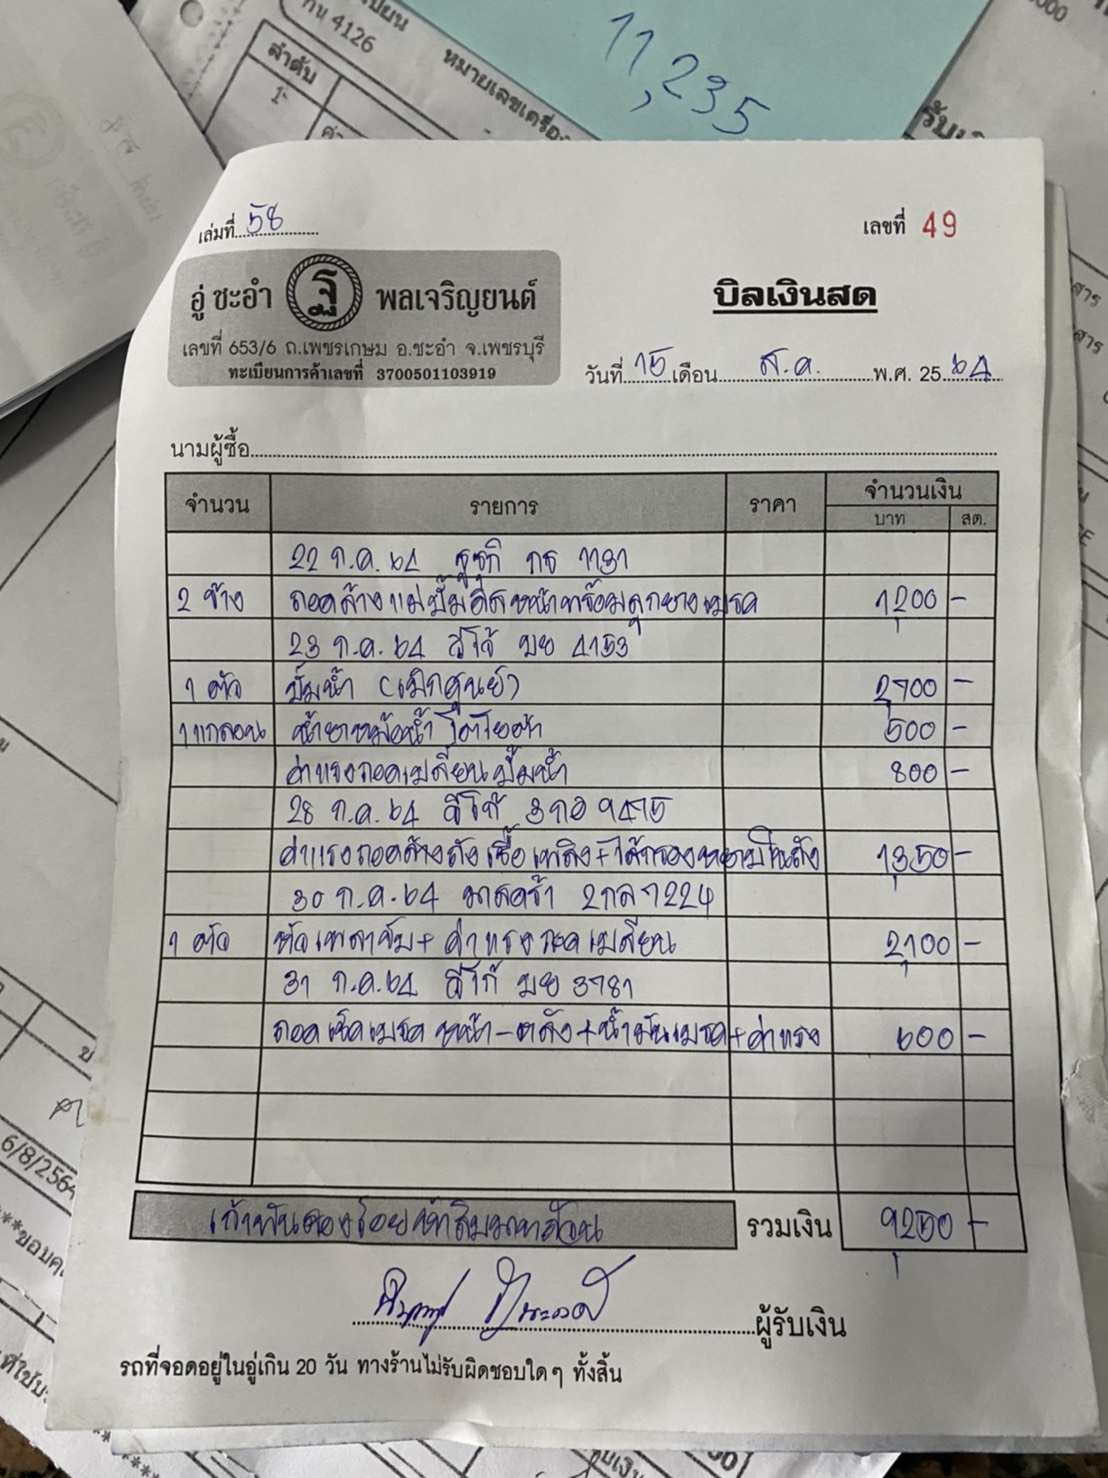 กัน 4126
หมายเลขเครื่อง
ลำดับ
1
11,235
เล่มที่ 58
เลขที่ 49
อู่ ชะอำ ฐ พลเจริญยนต์
เลขที่ 653/6 ถ.เพชรเกษม อ.ชะอำ จ.เพชรบุรี
ทะเบียนการค้าเลขที่ 3700501103919
บิลเงินสด
วันที่ 15 เดือน ส.ค. พ.ศ. 25 64
นามผู้ซื้อ
จำนวน รายการ ราคา จำนวนเงิน
บาท สต.
22 ก.ค. 64 ซูซูกิ กธ 1131
2 ข้าง ถอดล้างแม่ปั๊มดิสหน้าพร้อมลูกยางเบรค 1,200 -
23 ก.ค. 64 วีโก้ บย 4153
1 ตัว ปั๊มน้ำ (เบิกศูนย์) 2,700 -
1 แกลอน น้ำยาหม้อน้ำโตโยต้า 500 -
ค่าแรงถอดเปลี่ยนปั๊มน้ำ 800 -
28 ก.ค. 64 วีโก้ 3กอ 9475
ค่าแรงถอดล้างถังเชื้อเพลิง+ไส้กรองหยาบในถัง 1,350 -
30 ก.ค. 64 มาสด้า 2กล 7224
1 ตัว หัวเพลาขับ+ค่าแรงถอดเปลี่ยน 2,100 -
31 ก.ค. 64 วีโก้ บย 3781
ถอดเช็คเบรค หน้า-หลัง+น้ำมันเบรค+ค่าแรง 600 -
เก้าพันสองร้อยห้าสิบบาทถ้วน รวมเงิน 9,250 -
ผู้รับเงิน
รถที่จอดอยู่ในอู่เกิน 20 วัน ทางร้านไม่รับผิดชอบใดๆ ทั้งสิ้น
6/8/2564